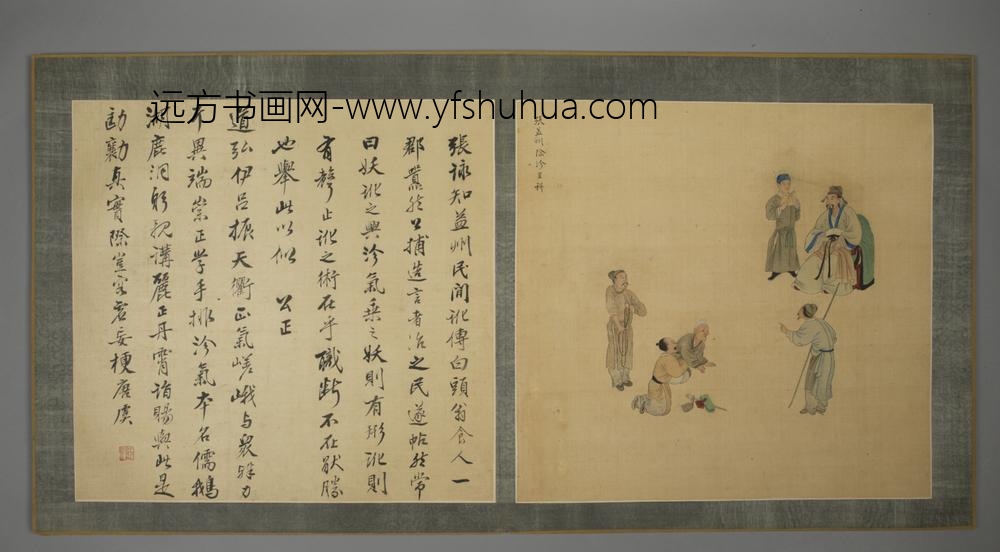 远方书画网-www.yfshuhua.com
張益州除沴
張詠知益州民間訛傳白頭翁食人一
郡囂然公捕造言者治之民遂帖然常
曰妖訛之興沴氣乘之妖則有形訛則
有聲止訛之術在乎識斷不在厭勝
也舉此以似 公正
道弘伊呂振天衢正氣嵯峨與衆殊力
斥異端崇正學手排沴氣本名儒鵝
湖鹿洞躬親講麗正丹霄詣賜輿此是
勷真實際豈容虛妄梗唐虞